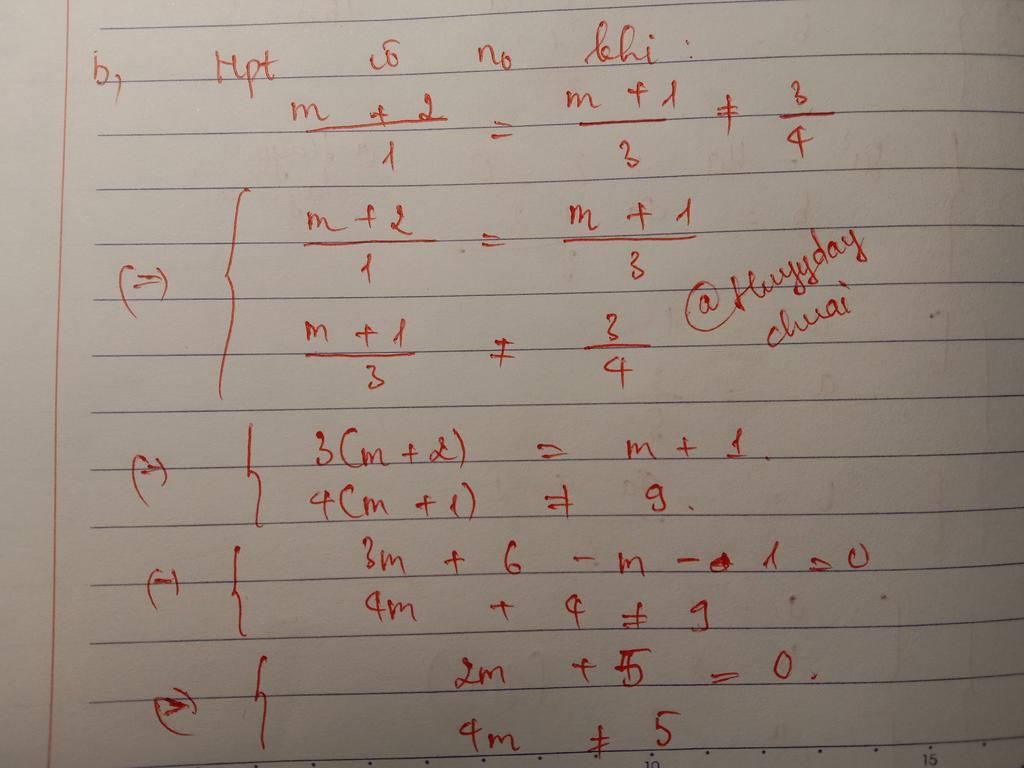 b, Hpt có no khi :
m + 2 / 1 = m + 1 / 3 ≠ 3 / 4
(=) { m + 2 / 1 = m + 1 / 3
m + 1 / 3 ≠ 3 / 4
@Huyyday
chuai
(=) { 3(m + 2) = m + 1.
4(m + 1) ≠ 9.
(=) { 3m + 6 - m - 1 = 0
4m + 4 ≠ 9
(=) { 2m + 5 = 0.
4m ≠ 5
10 15